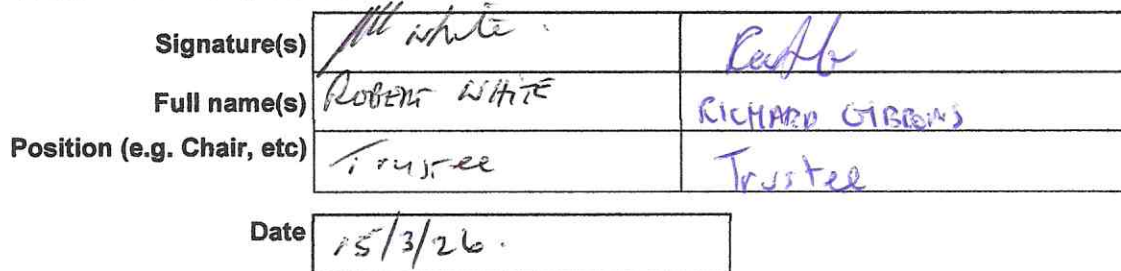 Signature(s) White
Full name(s) ROBERT WHITE RICHARD GIBBONS
Position (e.g. Chair, etc) Trustee Trustee
Date 15/3/26.